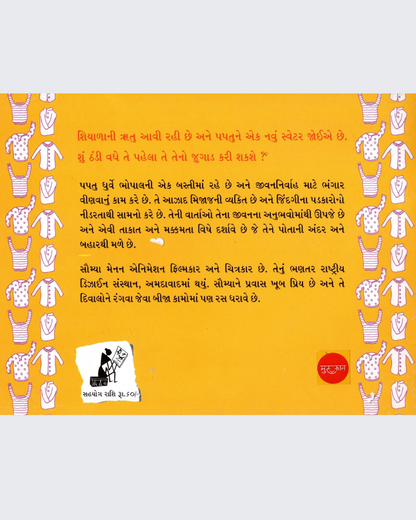 શિયાળાની ઋતુ આવી રહી છે અને પપતુને એક નવું સ્વેટર જોઈએ છે.
શું ઠંડી વધે તે પહેલા તે તેનો જુગાડ કરી શકશે ?
પપતુ ધુર્વે ભોપાલની એક બસ્તીમાં રહે છે અને જીવનનિર્વાહ માટે ભંગાર
વીણવાનું કામ કરે છે. તે આઝાદ મિજાજની વ્યક્તિ છે અને જિંદગીના પડકારોનો
નીડરતાથી સામનો કરે છે. તેની વાર્તાઓ તેના જીવનના અનુભવોમાંથી ઊપજે છે
અને એવી તાકાત અને મક્કમતા વિષે દર્શાવે છે જે તેને પોતાની અંદર અને
બહારથી મળે છે.
સૌમ્યા મેનન એનિમેશન ફિલ્મકાર અને ચિત્રકાર છે. તેનું ભણતર રાષ્ટ્રીય
ડિઝાઈન સંસ્થાન, અમદાવાદમાં થયું. સૌમ્યાને પ્રવાસ ખૂબ પ્રિય છે અને તે
દિવાલોને રંગવા જેવા બીજા કામોમાં પણ રસ ધરાવે છે.
સહયોગ રાશિ રૂા.૬૦/-
मुस्कान